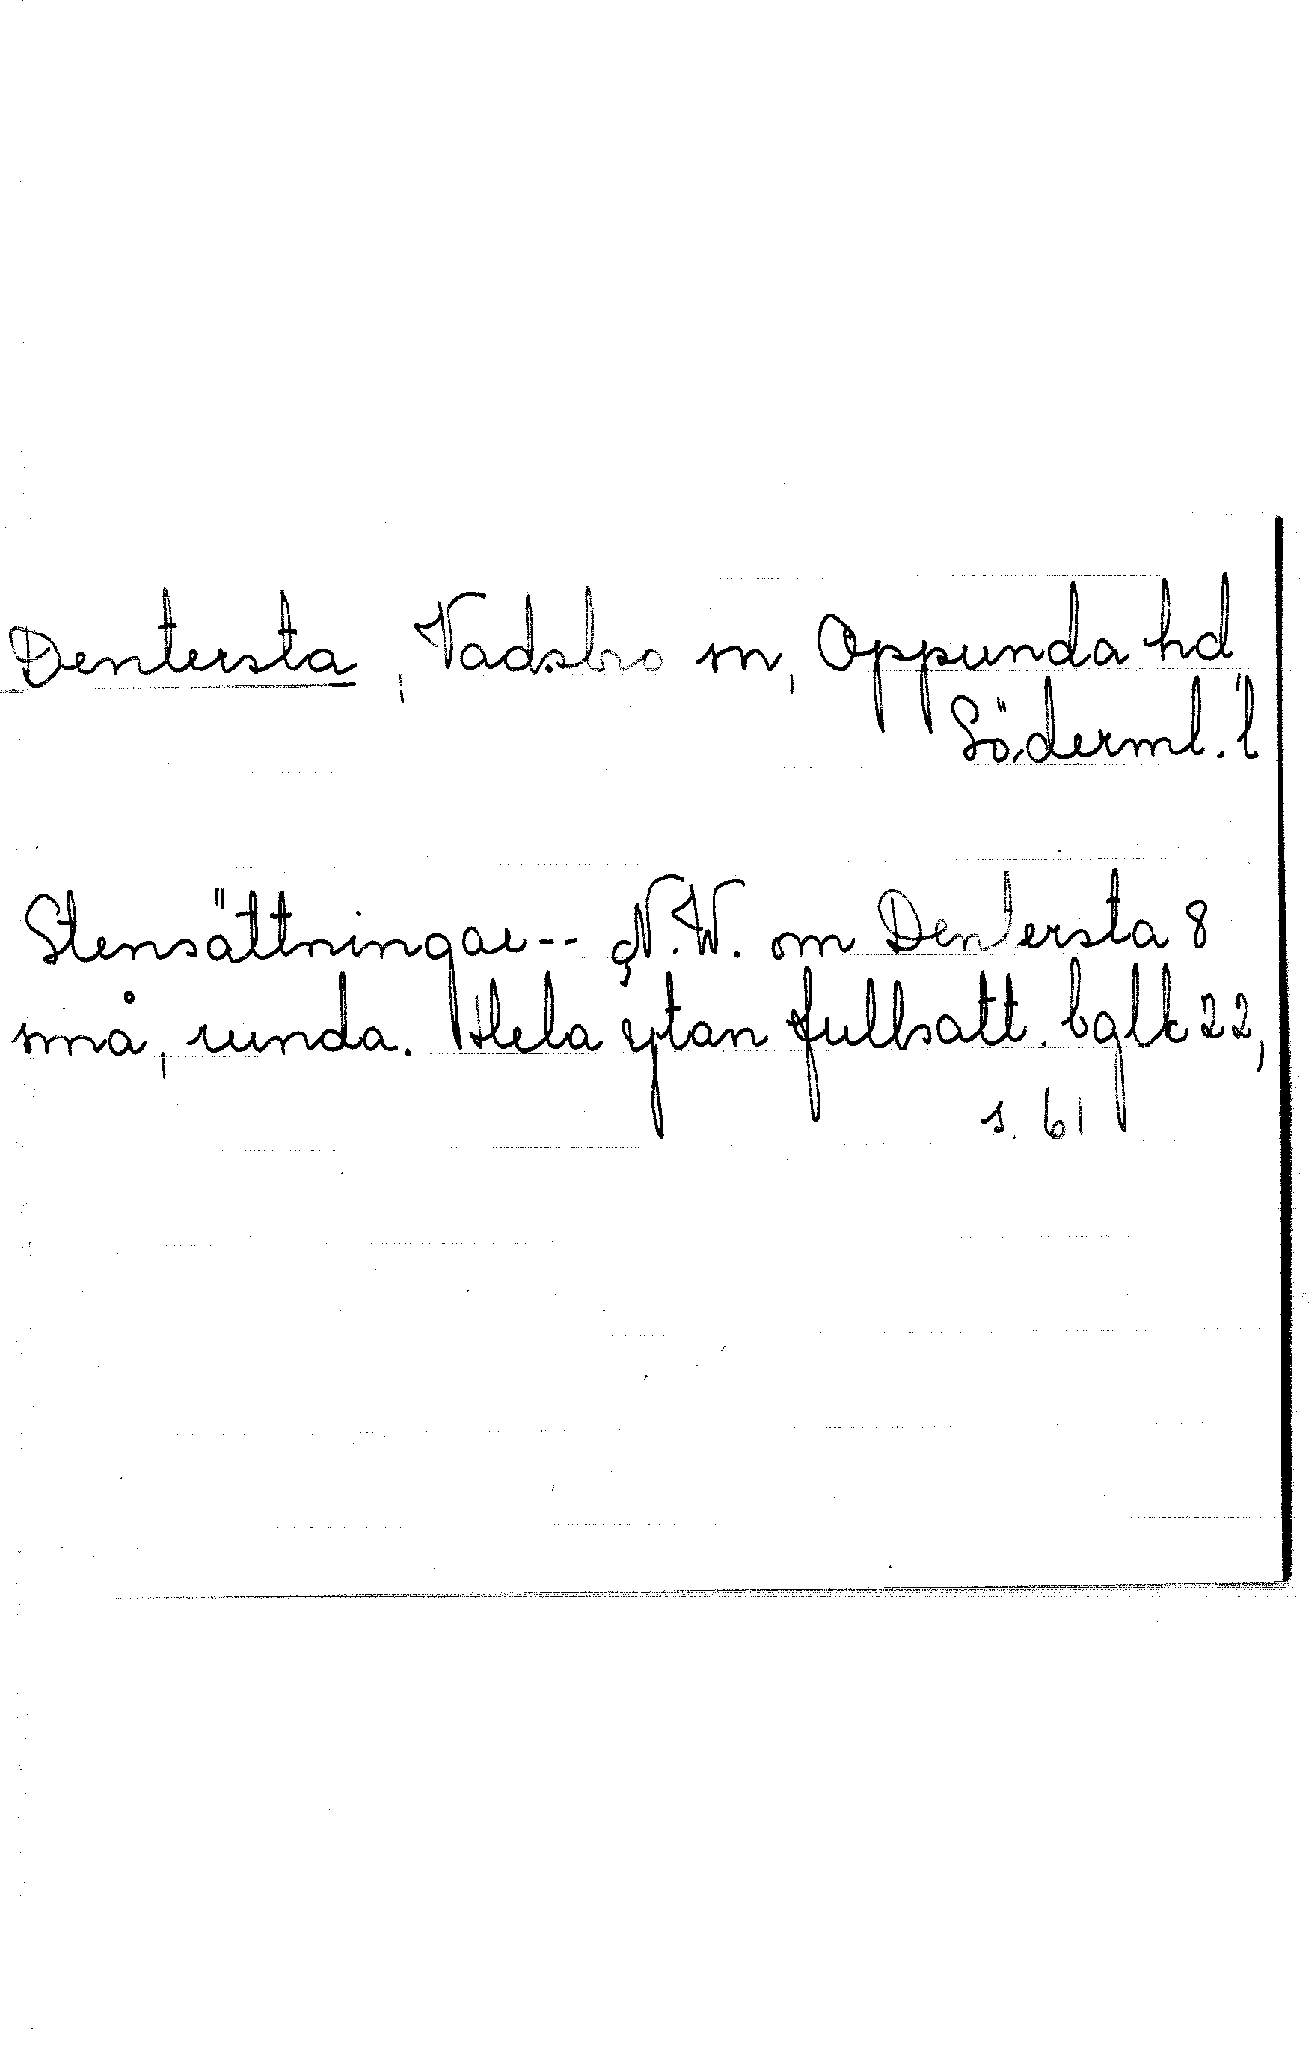 Dentersta, Vadsbro sn, Oppunda hd,
Söderml. l
Stensättningar -- N.W. om Dentersta 8
små, runda. Hela ytan fullsatt. bglk 22,
s. 61